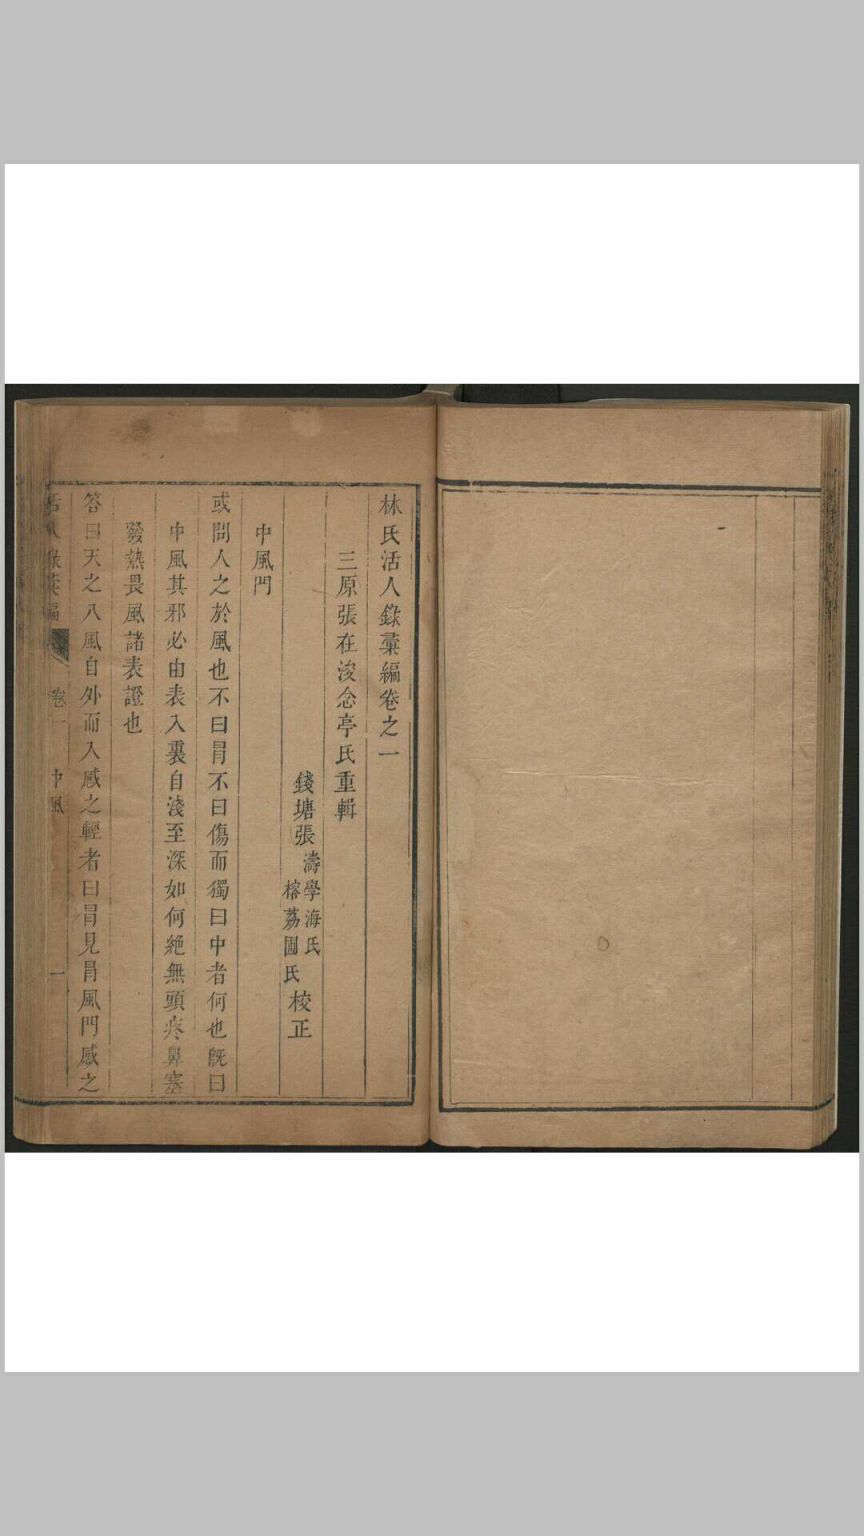 林氏活人錄彙編卷之一
三原張在浚念亭氏重輯
錢塘張濤學海氏
榕荔圃氏校正
中風門
或問人之於風也不曰冒不曰傷而獨曰中者何也既曰
中風其邪必由表入裏自淺至深如何絶無頭疼鼻塞
發熱畏風諸表證也
答曰天之八風自外而入感之輕者曰冒見冒風門感之
活人錄彙編
卷一
中風
一